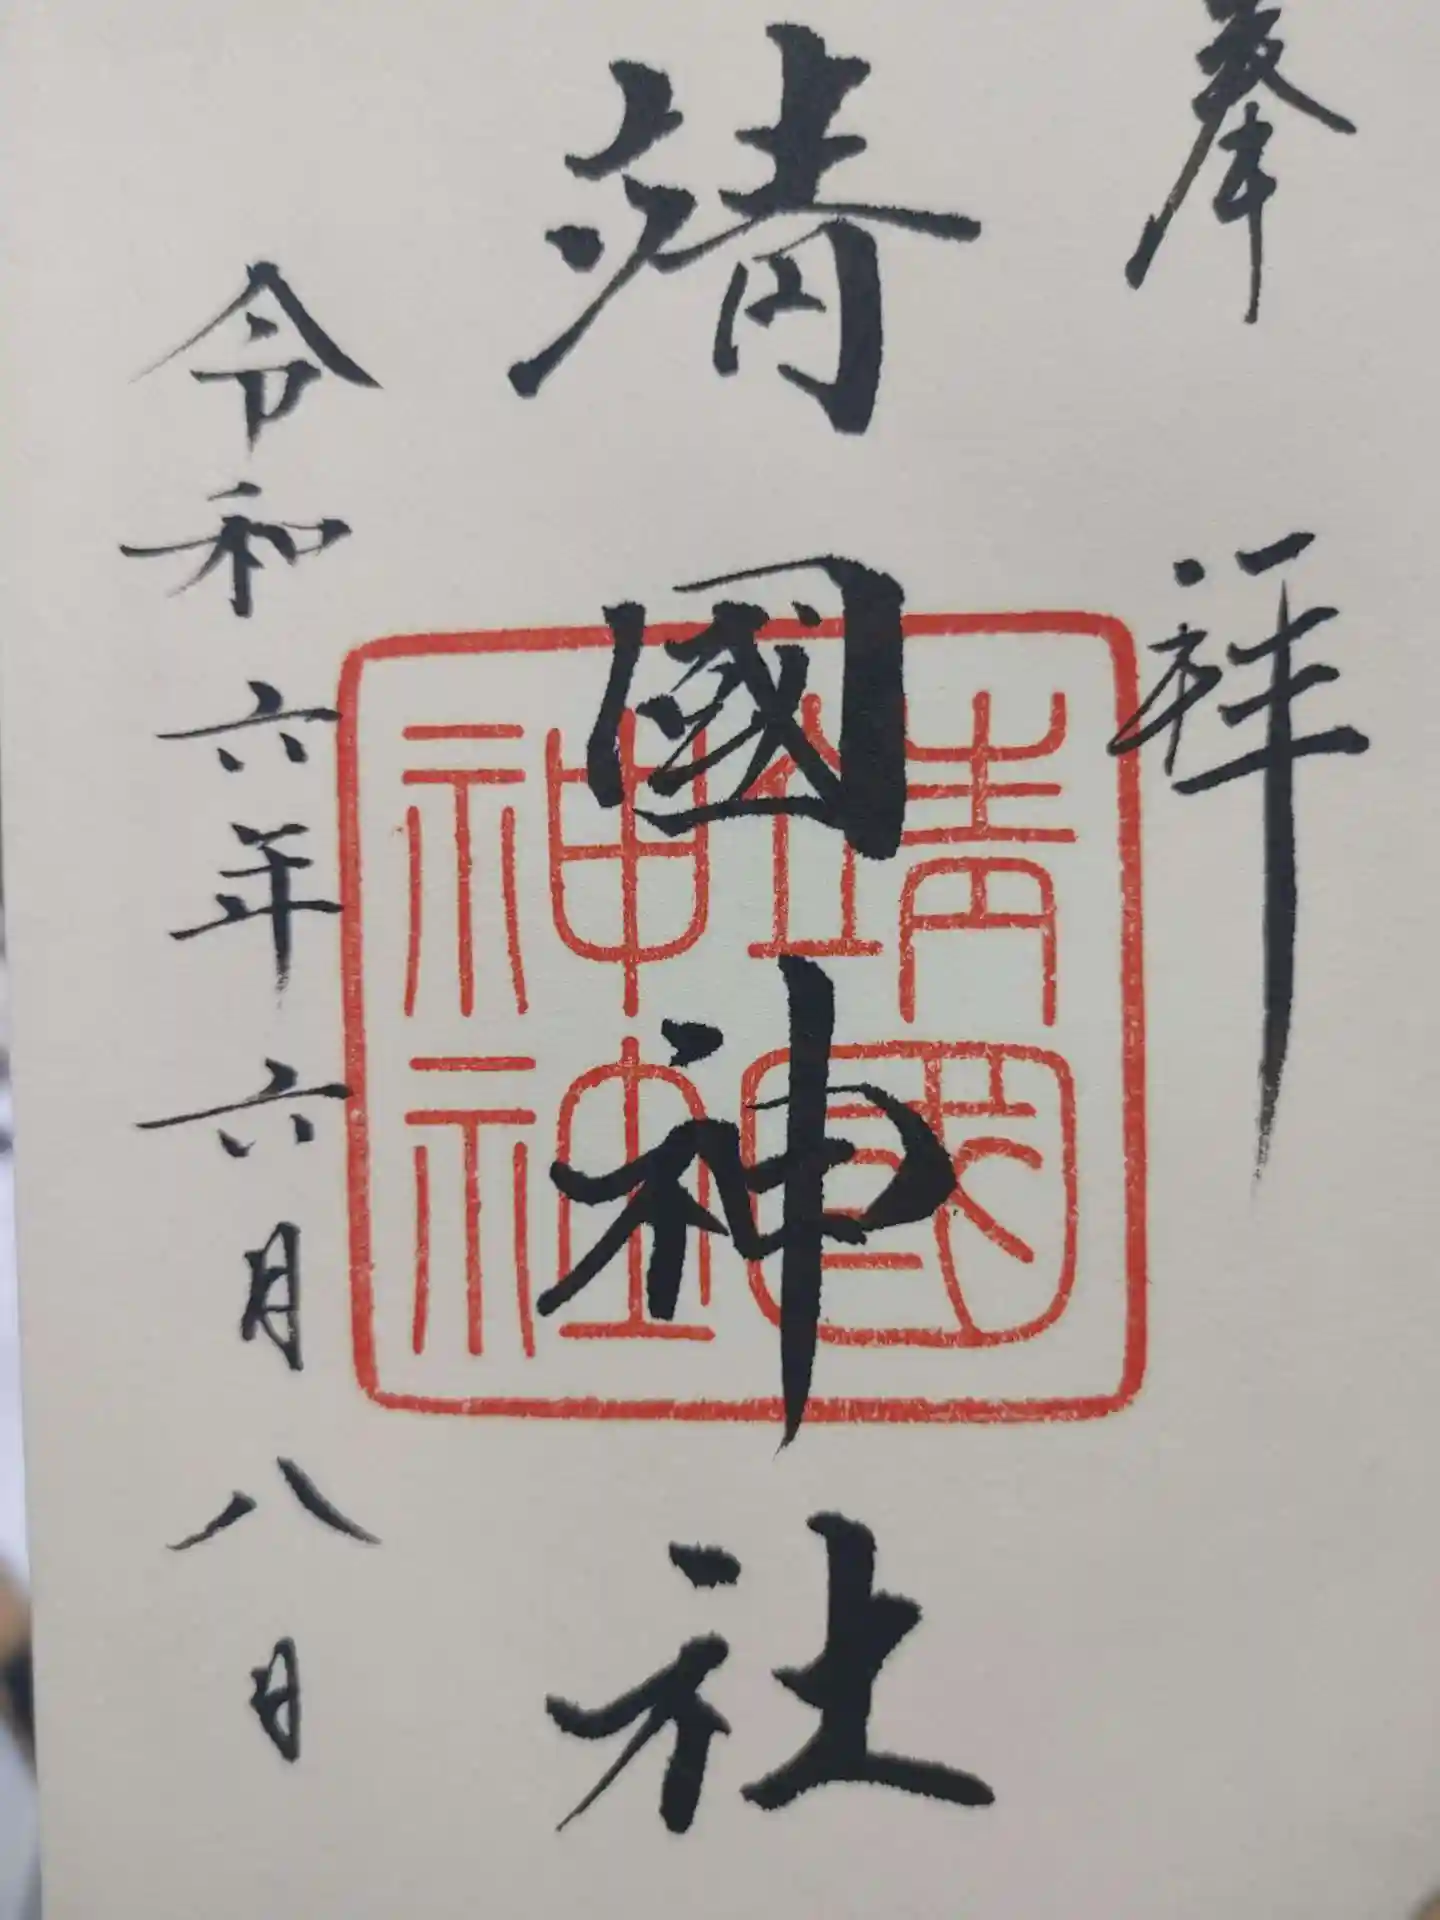 奉拝
靖國神社
靖國神社
令和六年六月八日